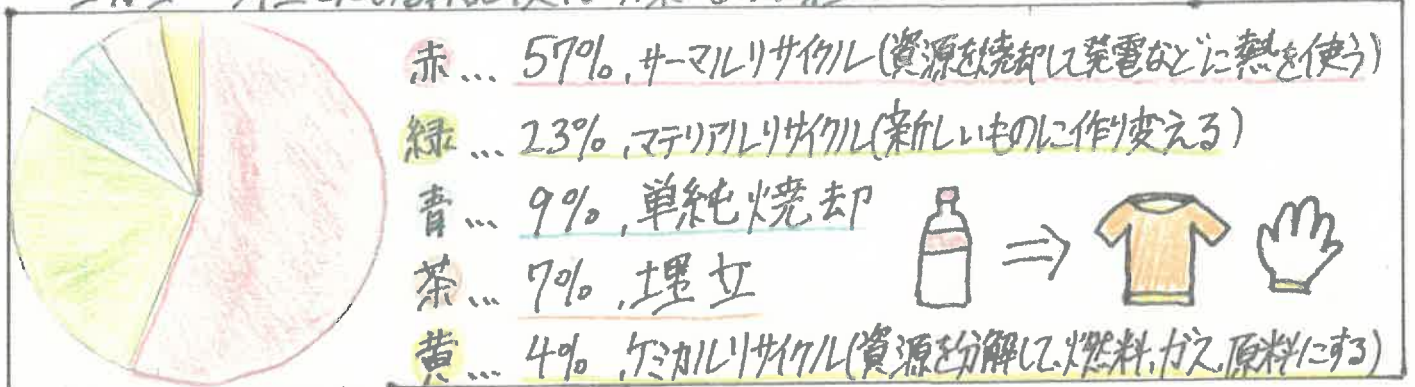 赤… 57%,サーマルリサイクル(資源を焼却して発電などに熱を使う)
緑… 23%,マテリアルリサイクル(新しいものに作り変える)
青… 9%,単純焼却
茶… 7%,埋立
黄… 4%,ケミカルリサイクル(資源を分解して、燃料,ガス,原料にする)